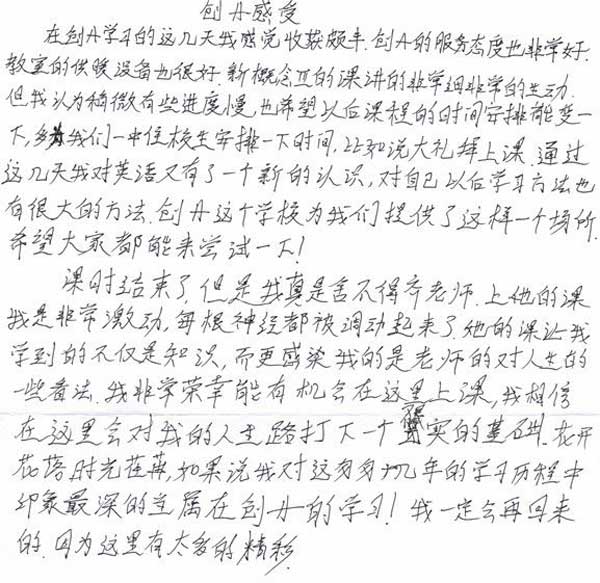 创A感受
在创A学习的这几天我感觉收获颇丰.创A的服务态度也非常好.
教室的供暖设备也很好.新概念Ⅱ的课讲的非常细非常的生动.
但我认为稍微有些进度慢,也希望以后课程的时间安排能变一
下,多为我们一中住校生安排一下时间,比如说大礼拜上课.通过
这几天我对英语又有了一个新的认识,对自己以后学习方法也
有很大的方法.创A这个学校为我们提供了这样一个场所.
希望大家都能来尝试一下!
课时结束了,但是我真是舍不得齐老师.上他的课
我是非常激动,每根神经都被调动起来了.她的课让我
学到的不仅是知识,而更感染我的是老师的对人生的
一些看法.我非常荣幸能有机会在这里上课,我相信
在这里会对我的人生路打下一个坚实的基础.花开
花落,时光荏苒,如果说我对这几年的学习历程中
印象最深的主属在创A的学习!我一定会再回来
的.因为这里有太多的精彩.